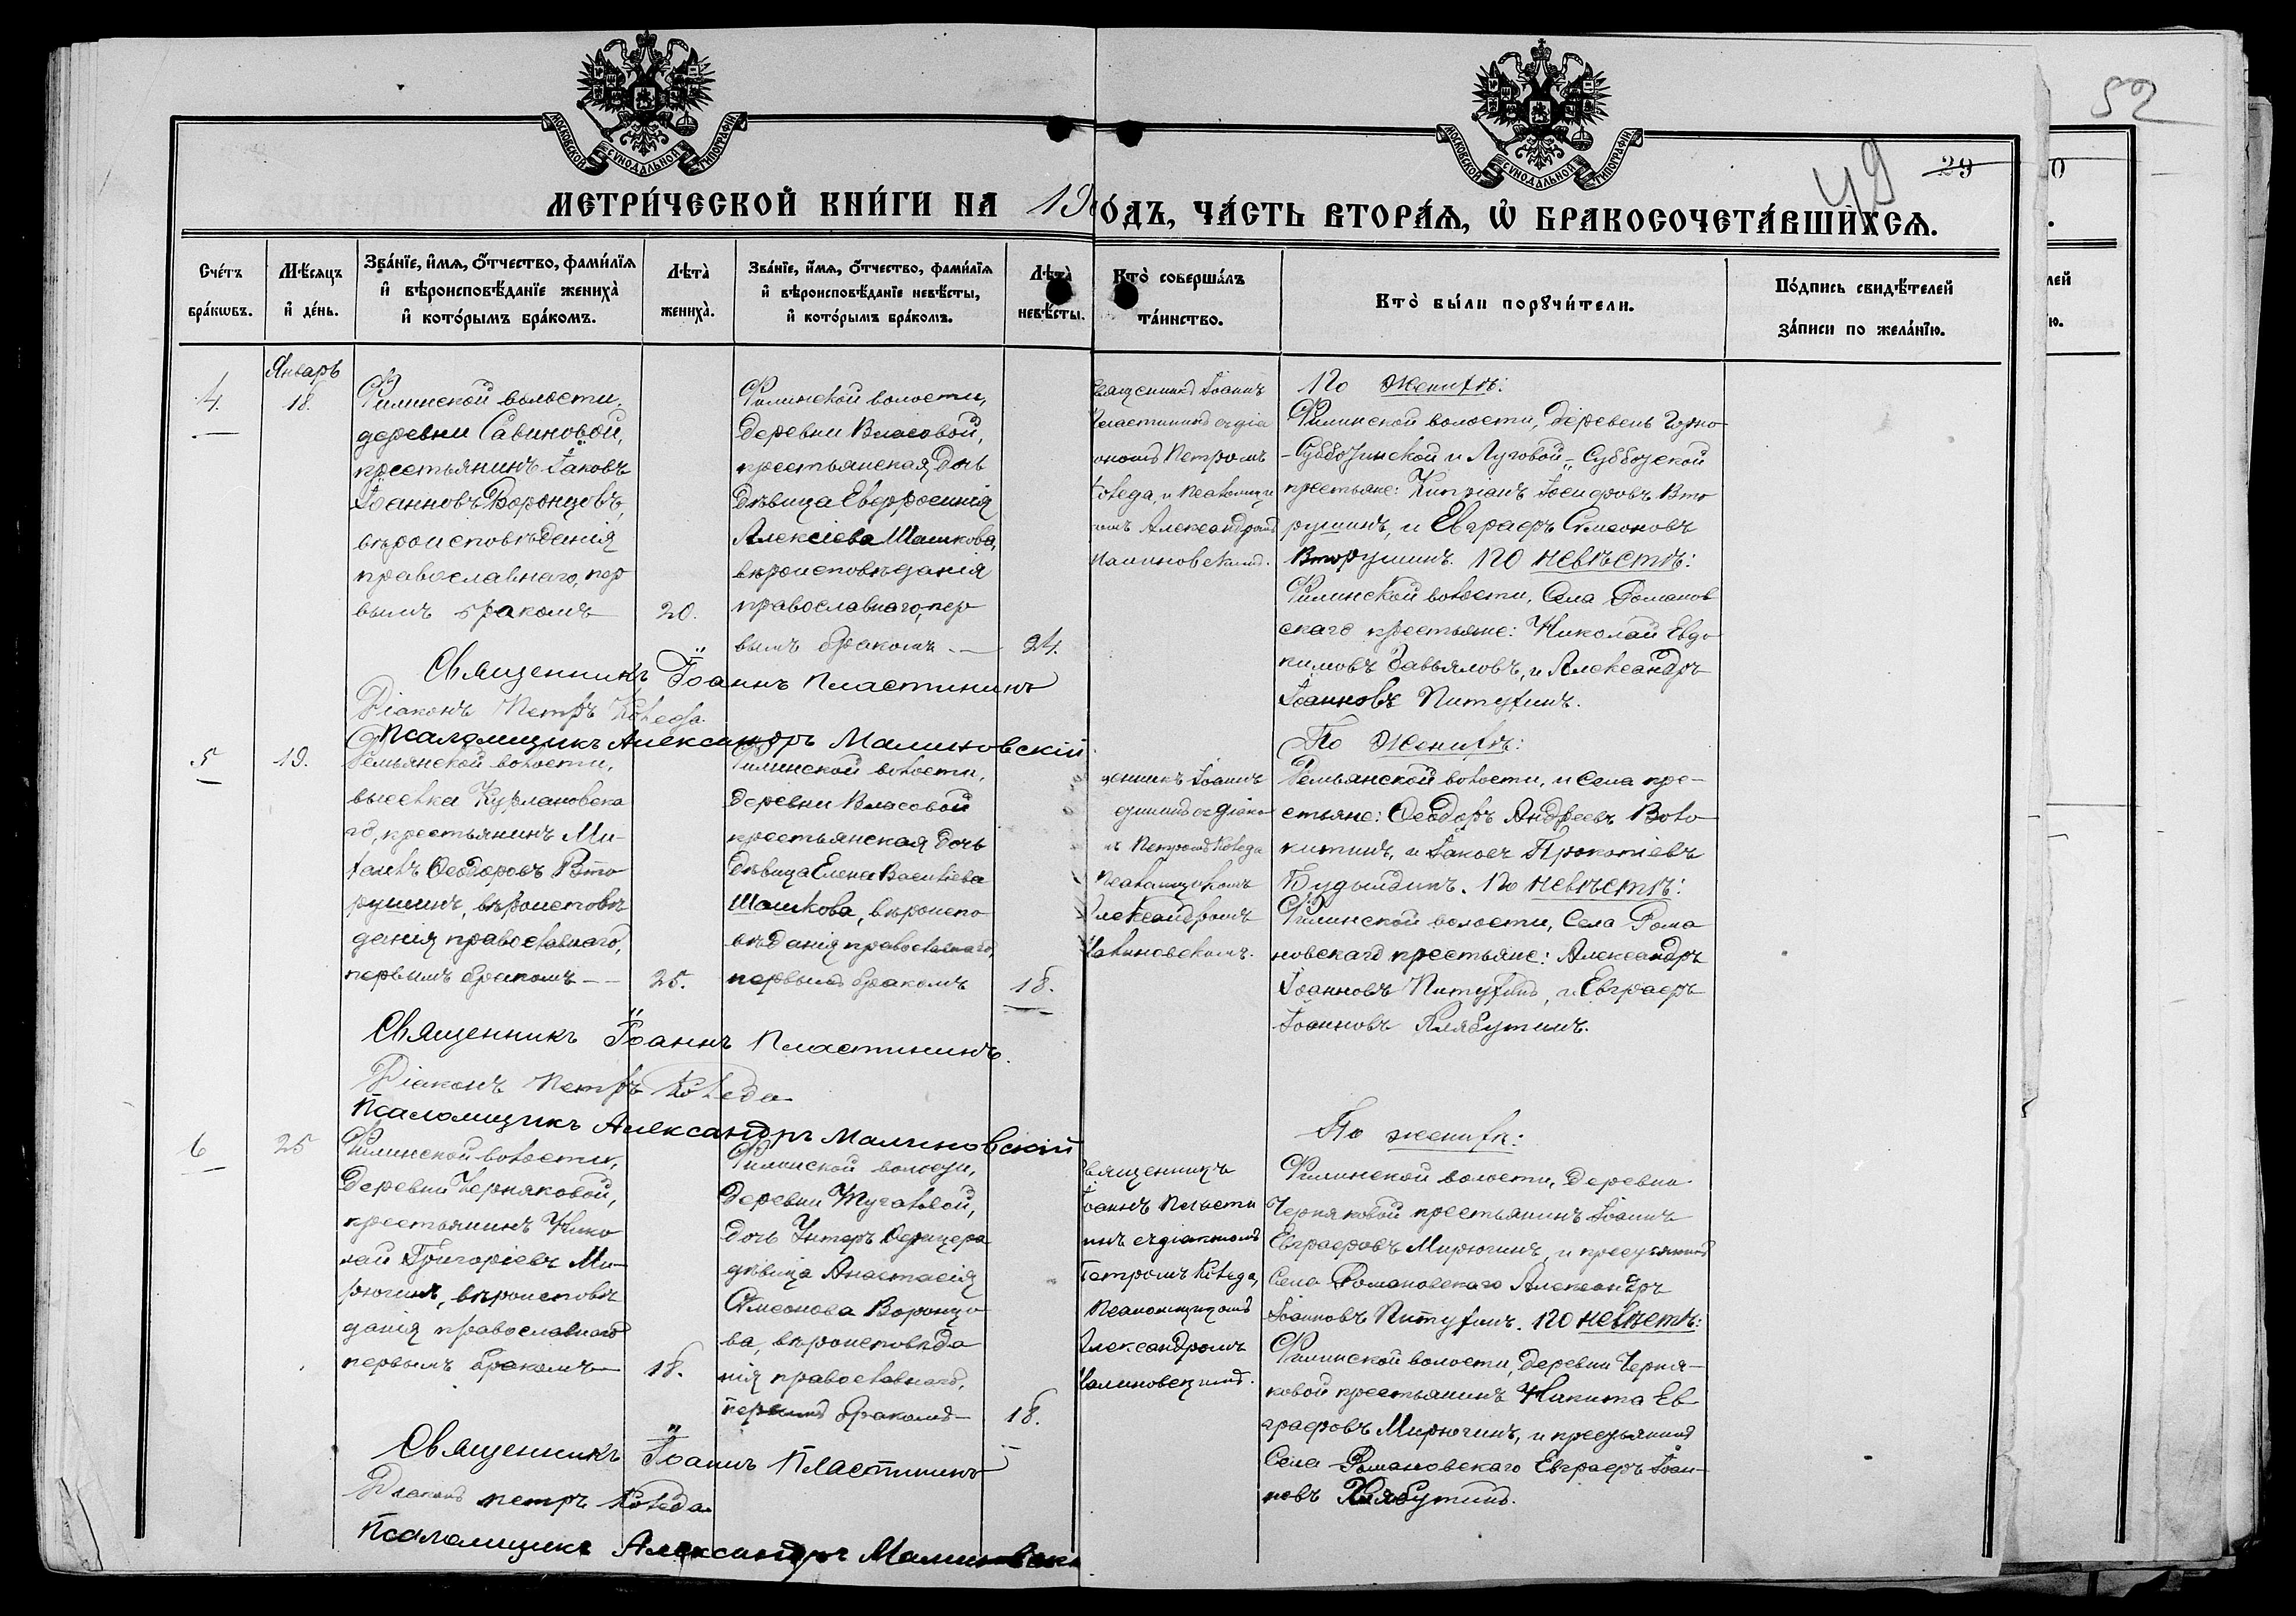 52
МОСКОВСКОЙ СУНОДАЛЬНОЙ ТИПОГРАФІИ
МОСКОВСКОЙ СУНОДАЛЬНОЙ ТИПОГРАФІИ
49
29
0
МЕТРИ́ЧЕСКОЙ КНИ́ГИ НА 19
О́ДЪ, ЧА́СТЬ ВТОРА́Ѧ, Ѡ҆ БРАКОСОЧЕТА́ВШИХСѦ.
Сче́тъ
бра́кѡвъ.
Мѣ́сяцъ
и҆ де́нь.
Зва́нїе, и҆́мѧ, ѻ҆́тчество, фами́лїѧ
и҆ вѣроисповѣ́данїе жениха̀
и҆ кото́рымъ бра́комъ.
Лѣта̀
жениха̀.
Зва́нїе, и҆́мѧ, ѻ҆́тчество, фами́лїѧ
и҆ вѣроисповѣ́данїе невѣ́сты,
и҆ кото́рымъ бра́комъ.
Лѣта̀
невѣ́сты.
Кто̀ соверша́лъ
та́инство.
Кто̀ бы́ли порꙋчи́тели.
По́дпись свидѣ́телей
за́писи по жела́нїю.
лей
ю.
Январь
4.
18.
Филинской волости,
деревни Савиновой,
крестьянинъ Іаковъ
Іоанновъ Воронцовъ,
вѣроисповѣданія
православнаго, пер
вымъ бракомъ
20.
Филинской волости,
деревни Власовой,
крестьянская дочь
дѣвица Евфросинія
Алексіева Машкова,
вѣроисповѣданія
православнаго, пер
вымъ бракомъ
24.
вященникъ Іоаннъ
Пластининъ съ діа
кономъ Петромъ
Коледа, и псаломщи
комъ Александромъ
Малиновскимъ.
По женихѣ:
Филинской волости, деревень Горно
-Субботинской и Луговой-Субботской
крестьяне: Кипріанъ Іосифовъ Вто
рушинъ, и Евграфъ Симеоновъ
Вторушинъ. По невѣстѣ:
Филинской волости, Села Романов
скаго крестьяне: Николай Евдо
кимовъ Завьяловъ, и Александръ
Іоанновъ Питухинъ.
Священникъ Іоаннъ Пластининъ
Діаконъ Петръ Коледа
Псаломщикъ Александръ Малиновскій
5
19.
Демьянской волости,
выселка
го, крестьянинъ Ми-
хаилъ Феодоровъ Вто
рушинъ, вѣроисповѣ
данія православнаго,
первымъ бракомъ
25.
Филинской волости,
деревни Власовой
крестьянская дочь
дѣвица Елена Василіева
Машкова, вѣроиспо
вѣданія православнаго,
первымъ бракомъ
18.
щенникъ Іоаннъ
съ діако
мъ Петромъ Коледа
Псаломщикомъ
Александромъ
Малиновскимъ.
По женихѣ:
Демьянской волости, и села кре-
стьяне: Феодоръ Андреевъ Воло
китинъ, и Іаковъ Прокопіевъ
Будылдинъ. По невѣстѣ:
Филинской волости, Села Рома
новскаго крестьяне: Александръ
Іоанновъ Питухинъ, и Евграфъ
Іоанновъ Клябутинъ.
Священникъ Іоаннъ Пластининъ.
Діаконъ Петръ Коледа
Псаломщикъ Александръ Малиновскій
6
25
Филинской волости,
деревни Черняковой,
крестьянинъ Нико
лай Григоріевъ Ми-
рюгинъ, вѣроисповѣ
данія православнаго
первымъ бракомъ
18.
Филинской волости,
деревни
дочь Унтеръ Офицера
дѣвица Анастасія
Симеонова Воронцо
ва, вѣроисповѣда
нія православнаго,
первымъ бракомъ
18.
вященникъ
Іоаннъ Пласти
нинъ съ діакономъ
Петромъ Коледа,
Псаломщикомъ
Александромъ
Малиновскимъ.
По женихѣ:
Филинской волости, деревни
Черняковой крестьянинъ Іоаннъ
Евграфовъ Мирюгинъ, и крестьянинъ
Села Романовскаго Александръ
Іоанновъ Питухинъ. По невѣстѣ:
Филинской волости, деревни Черня-
ковой крестьянинъ Никита Ев
графовъ Мирюгинъ, и крестьянинъ
Села Романовскаго Евграфъ Іоан-
новъ Клябутинъ.
Священникъ Іоаннъ Пластининъ
Діаконъ Петръ Коледа
Псаломщикъ Александръ